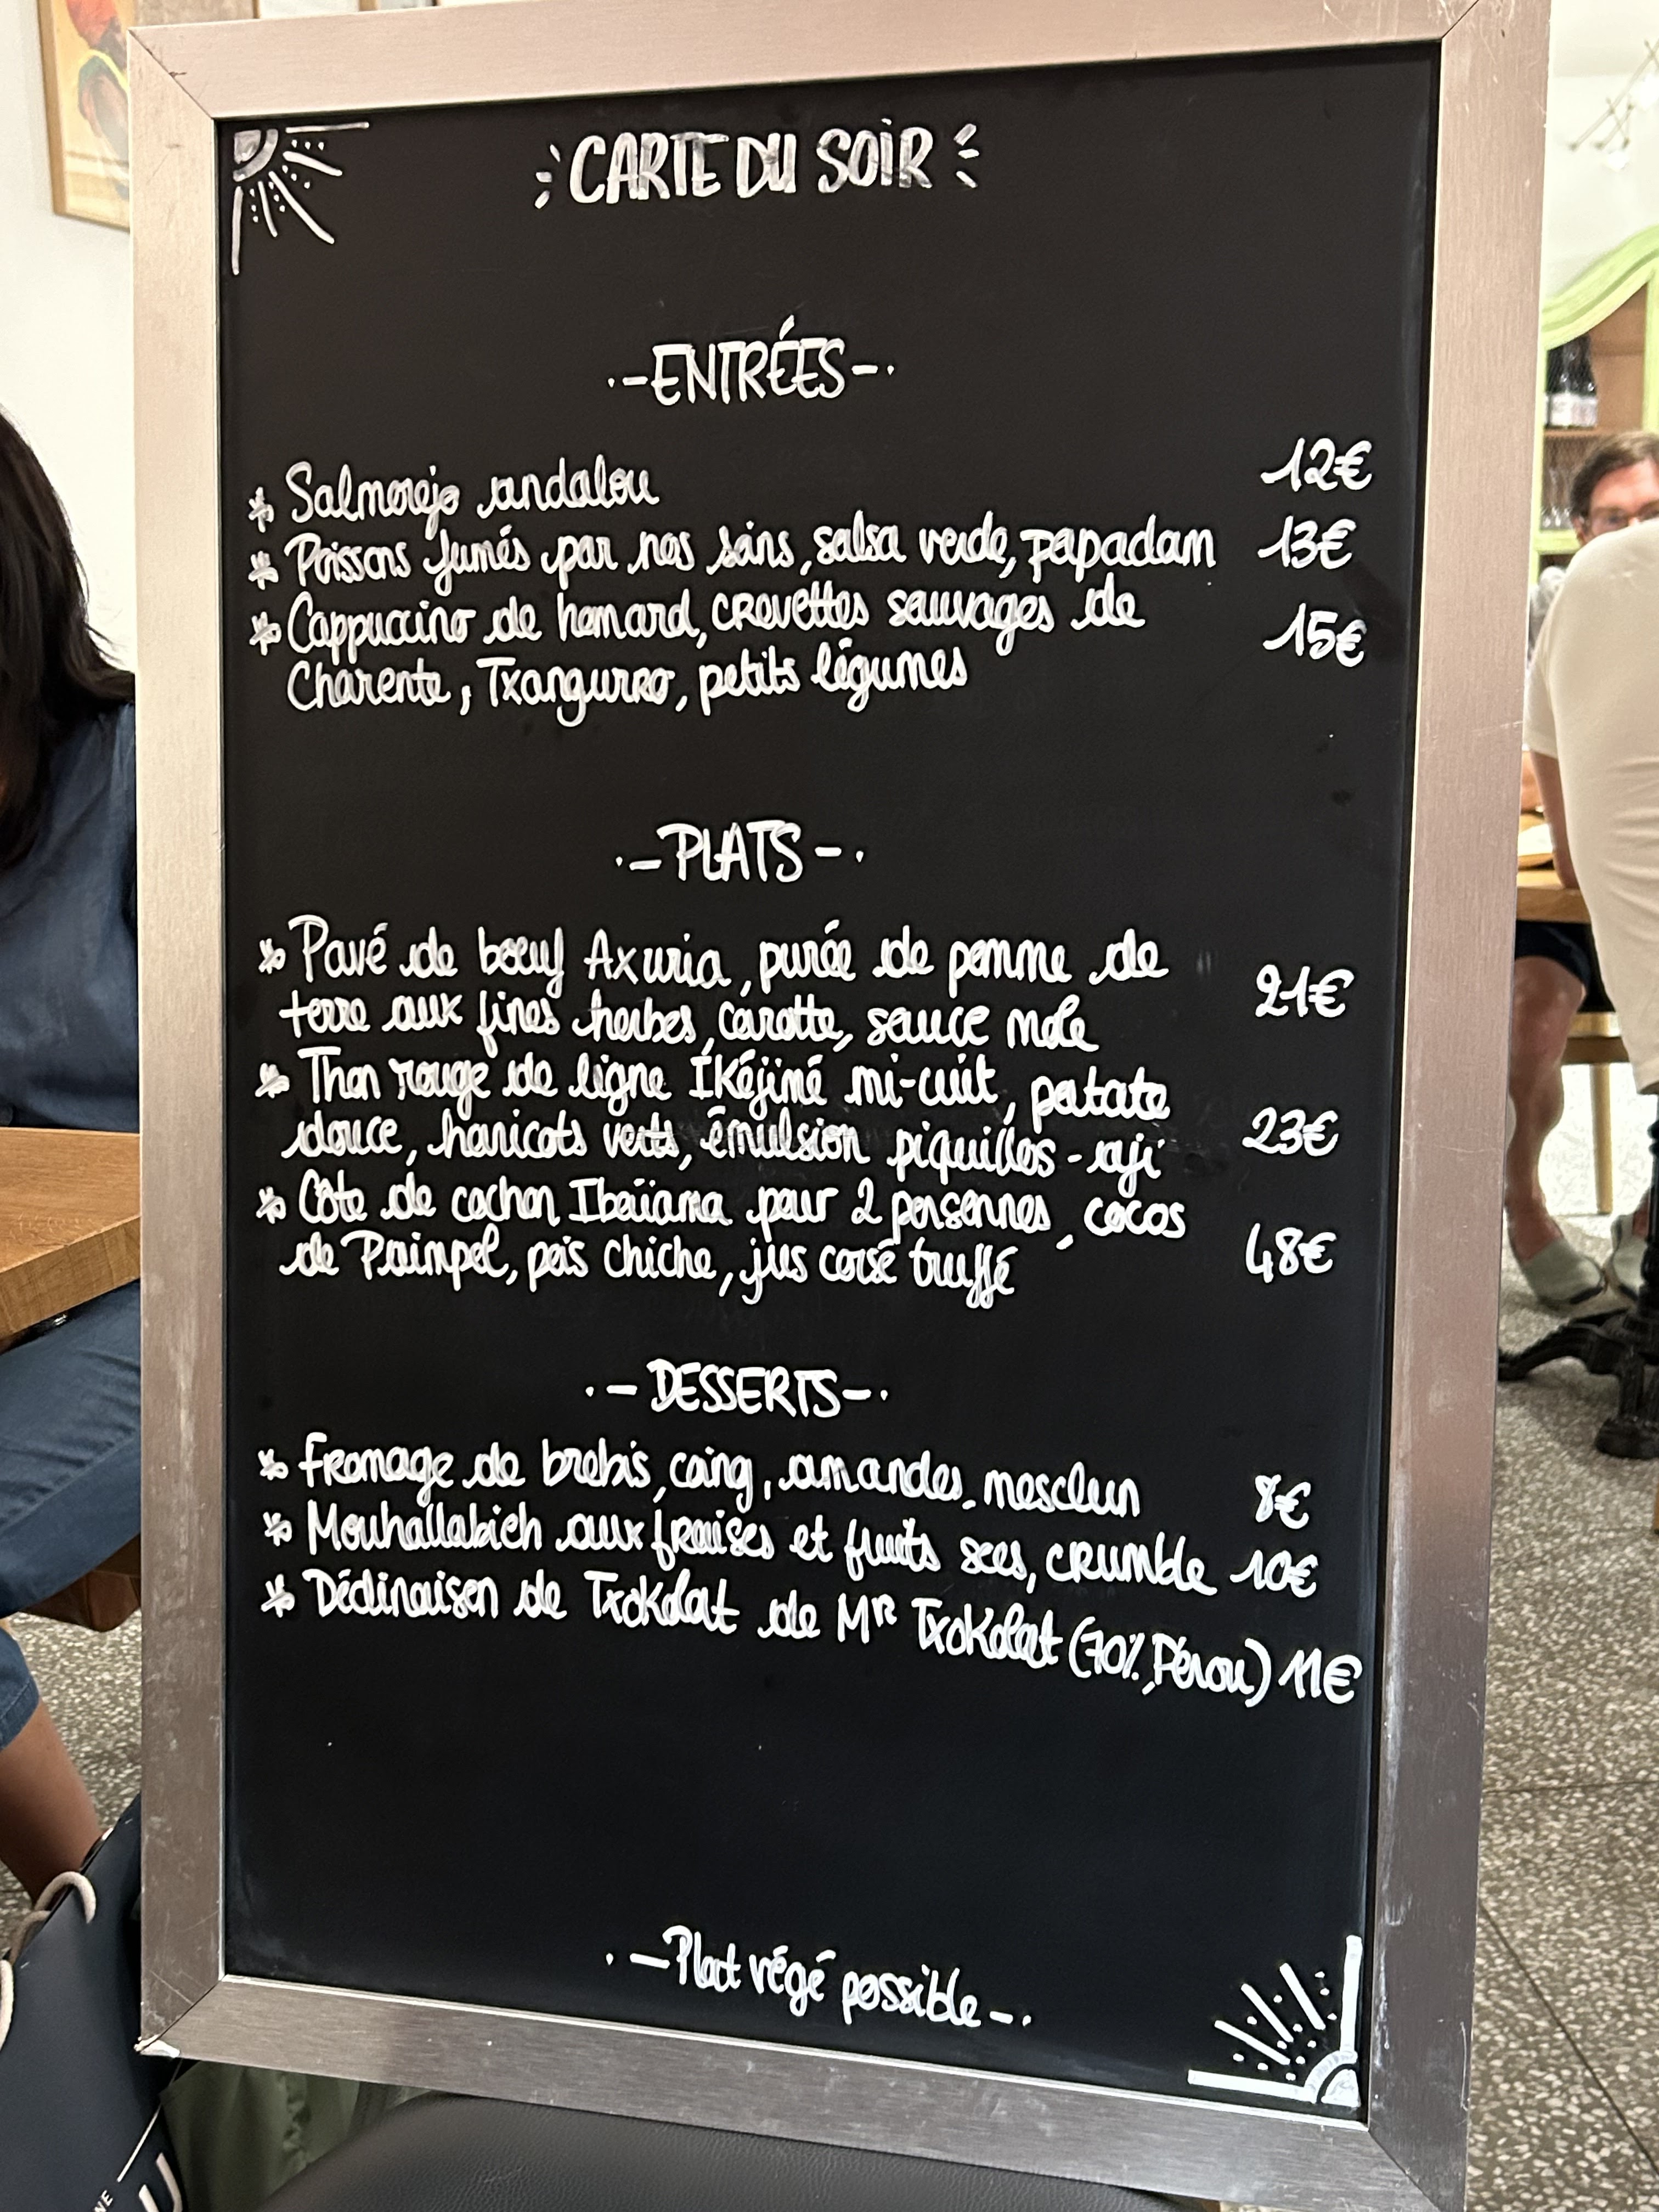 CARTE DU SOIR
-ENTRÉES-
* Salmorejo andalou 12€
* Poissons fumés par nos soins, salsa verde, papadam 13€
* Cappuccino de homard, crevettes sauvages de 15€
Charente, Txangurro, petits légumes
-PLATS-
* Pavé de boeuf Axuria, purée de pomme de
terre aux fines herbes, carotte, sauce mole 21€
* Thon rouge de ligne Ikéjimé mi-cuit, patate
douce, haricots verts, émulsion piquillos-aji 23€
* Côte de cochon Ibaïama pour 2 personnes, cocos
de Paimpol, pois chiche, jus corsé truffé 48€
-DESSERTS-
* Fromage de brebis, coing, amandes, mesclun 8€
* Mouhallabieh aux fraises et fruits secs, crumble 10€
* Déclinaison de Txokolat de Mr Txokolat (70%, Pérou) 11€
-Plat végé possible-